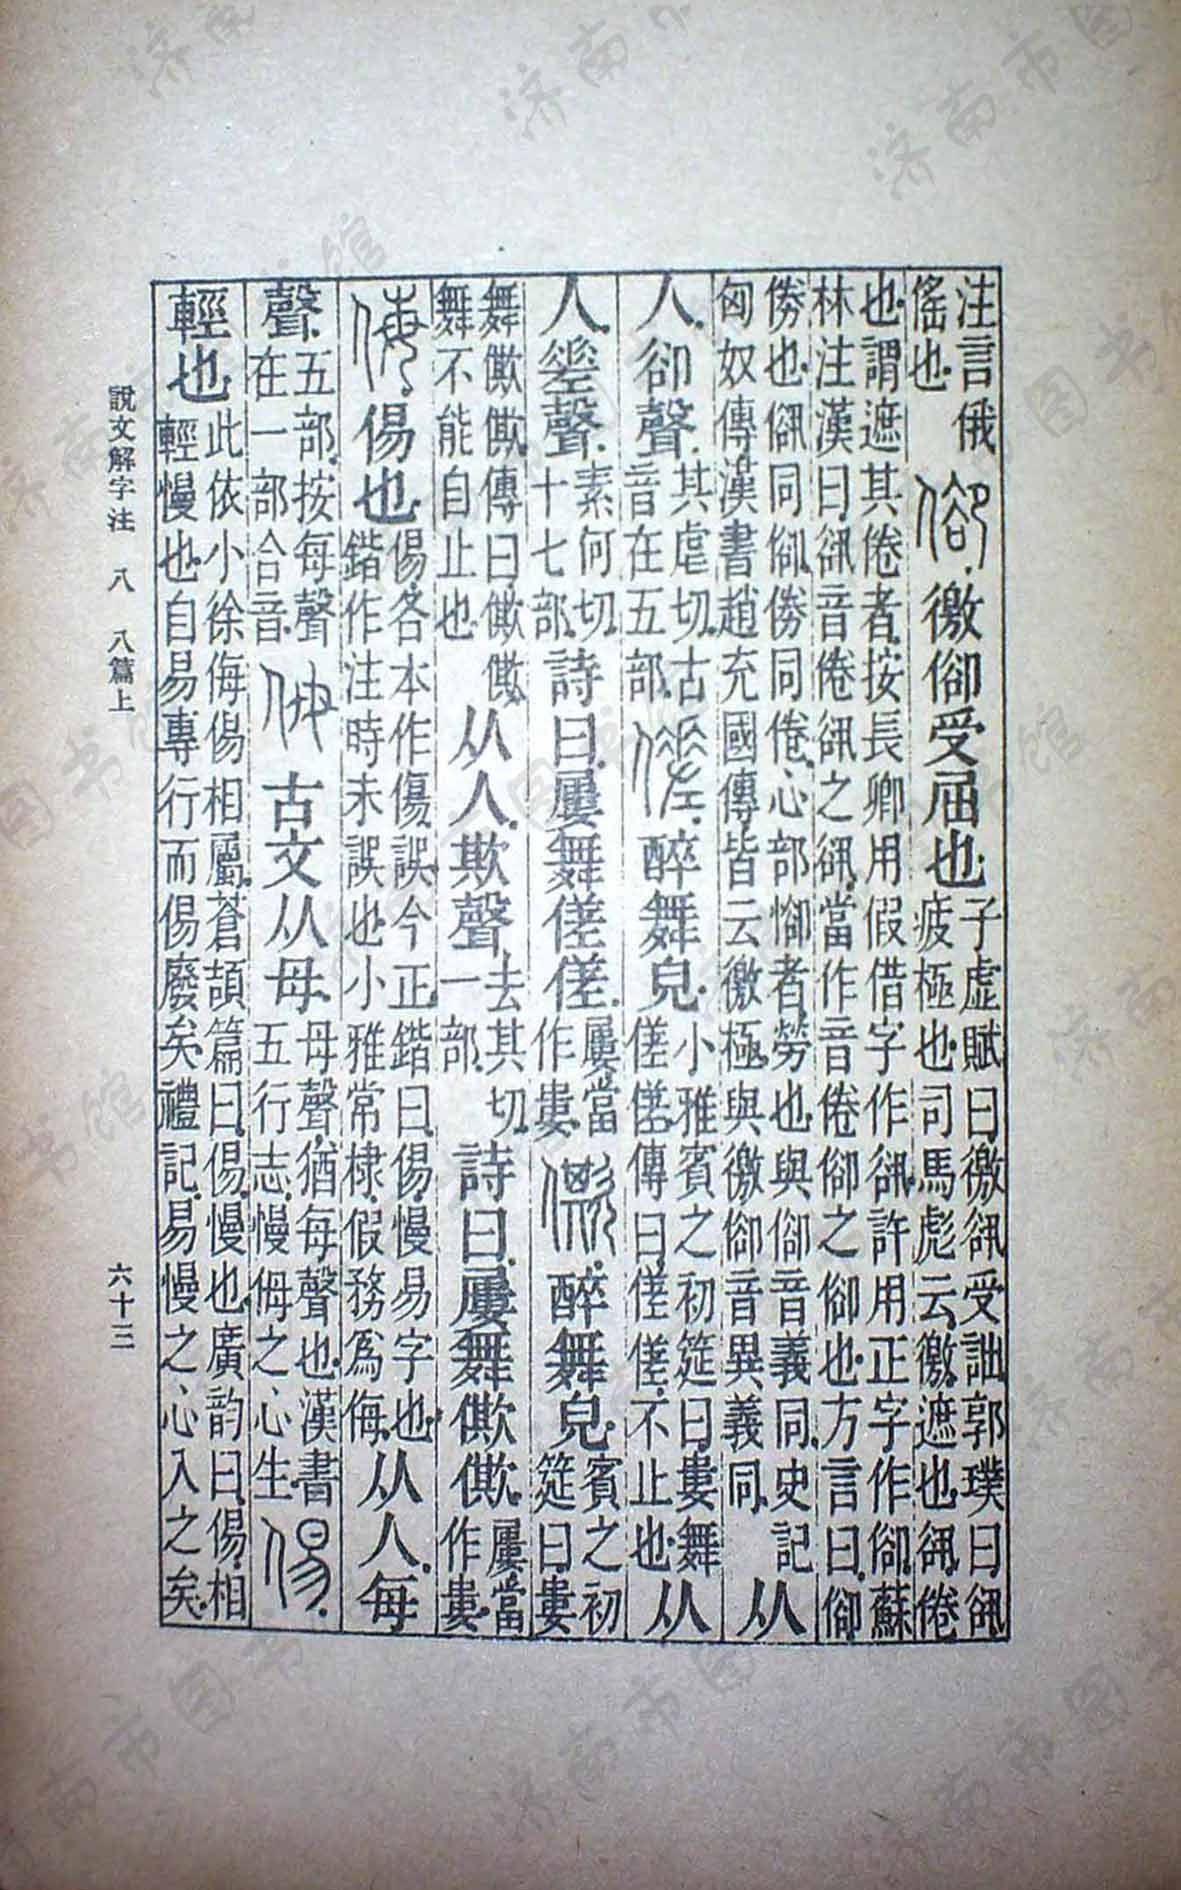 注言俄傜也㑢徼㑢受屈也子虛賦曰徼谻受詘郭璞曰谻疲極也司馬彪云徼遮也谻倦
也謂遮其倦者按長卿用假借字作谻許用正字作㑢蘇林注漢曰谻音倦谻之谻當作音倦㑢之㑢也方言曰㑢
㒆也谻同㑢㒆同倦心部㦬者勞也與㑢音義同史記匈奴傳漢書趙充國傳皆云徼極與徼㑢音異義同从
人卻聲其虐切古音在五部傞醉舞皃小雅賓之初筵曰婁舞傞傞傳曰傞傞不止也从
人𢀩聲素何切十七部詩曰屢舞傞傞屢當作婁僛醉舞皃賓之初筵曰婁
舞僛僛傳曰僛僛舞不能自止也从人欺聲去其切一部詩曰屢舞僛僛屢當作婁
侮㑥也㑥各本作傷誤今正鍇曰㑥慢易字也鍇作注時未誤也小雅常棣假務爲侮从人每
聲五部按每聲在一部合音㑄古文从母母聲猶每聲也漢書五行志慢㑄之心生㑥
輕也此依小徐侮㑥相屬蒼頡篇曰㑥慢也廣韵曰㑥相輕慢也自易專行而㑥廢矣禮記易慢之心入之矣
說文解字注 八 八篇上 六十三